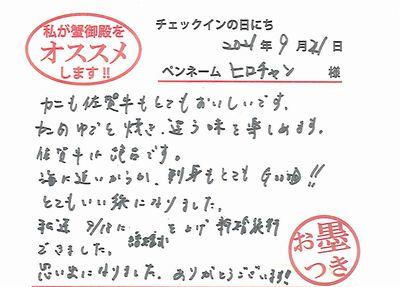 私が蟹御殿を
オススメ
します!!
チェックインの日にち
2021年9月21日
ペンネーム ヒロチャン 様
カニも佐賀牛もとてもおいしいです。
カニのゆでと焼き、違う味を楽しめます。
佐賀牛は絶品です。
海に近いからか、刺身もとてもGood!!
とてもいい旅になりました。
私達 9/18に 結婚式を上げ 新婚旅行
できました。
思い出になりました。ありがとうございます!!
お墨
つき